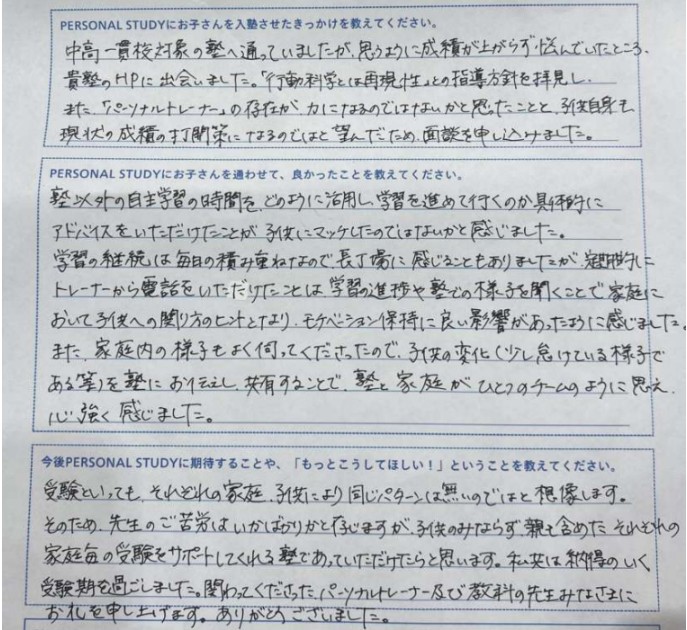 PERSONAL STUDYにお子さんを入塾させたきっかけを教えてください。
中高一貫校対象の塾へ通っていましたが、思うように成績が上がらず悩んでいたところ、
貴塾のHPに出会いました。「行動科学とは再現性」との指導方針を拝見し、
また、「パーソナルトレーナー」の存在が、力になるのではないかと思ったことと、子供自身も
現状の成績の打開策になるのではと望んだため、面談を申し込みました。
PERSONAL STUDYにお子さんを通わせて、良かったことを教えてください。
塾以外の自主学習の時間を、どのように活用し、学習を進めて行くのか具体的に
アドバイスをいただけたことが、子供にマッチしたのではないかと感じました。
学習の継続は毎日の積み重ねなので、長丁場に感じることもありましたが、定期的に
トレーナーから電話をいただけたことは、学習の進捗や塾での様子を聞くことで、家庭に
おいて子供への関り方のヒントとなり、モチベーション保持に良い影響があったように感じました。
また、家庭内の様子もよく伺ってくださったので、子供の変化(少し怠けている様子で
ある等)を塾にお伝えし、共有することで、塾と家庭がひとつのチームのように思え、
心強く感じました。
今後PERSONAL STUDYに期待することや、「もっとこうしてほしい!」ということを教えてください。
受験といっても、それぞれの家庭、子供により同じパターンは無いのではと想像します。
そのため、先生のご苦労はいかばかりかと存じますが、子供のみならず、親も含めたそれぞれの
家庭毎の受験をサポートしてくれる塾であっていただけたらと思います。私共は納得のいく
受験期を過ごしました。関わってくださった、パーソナルトレーナー及び教科の先生みなさまに
お礼を申し上げます。ありがとうございました。